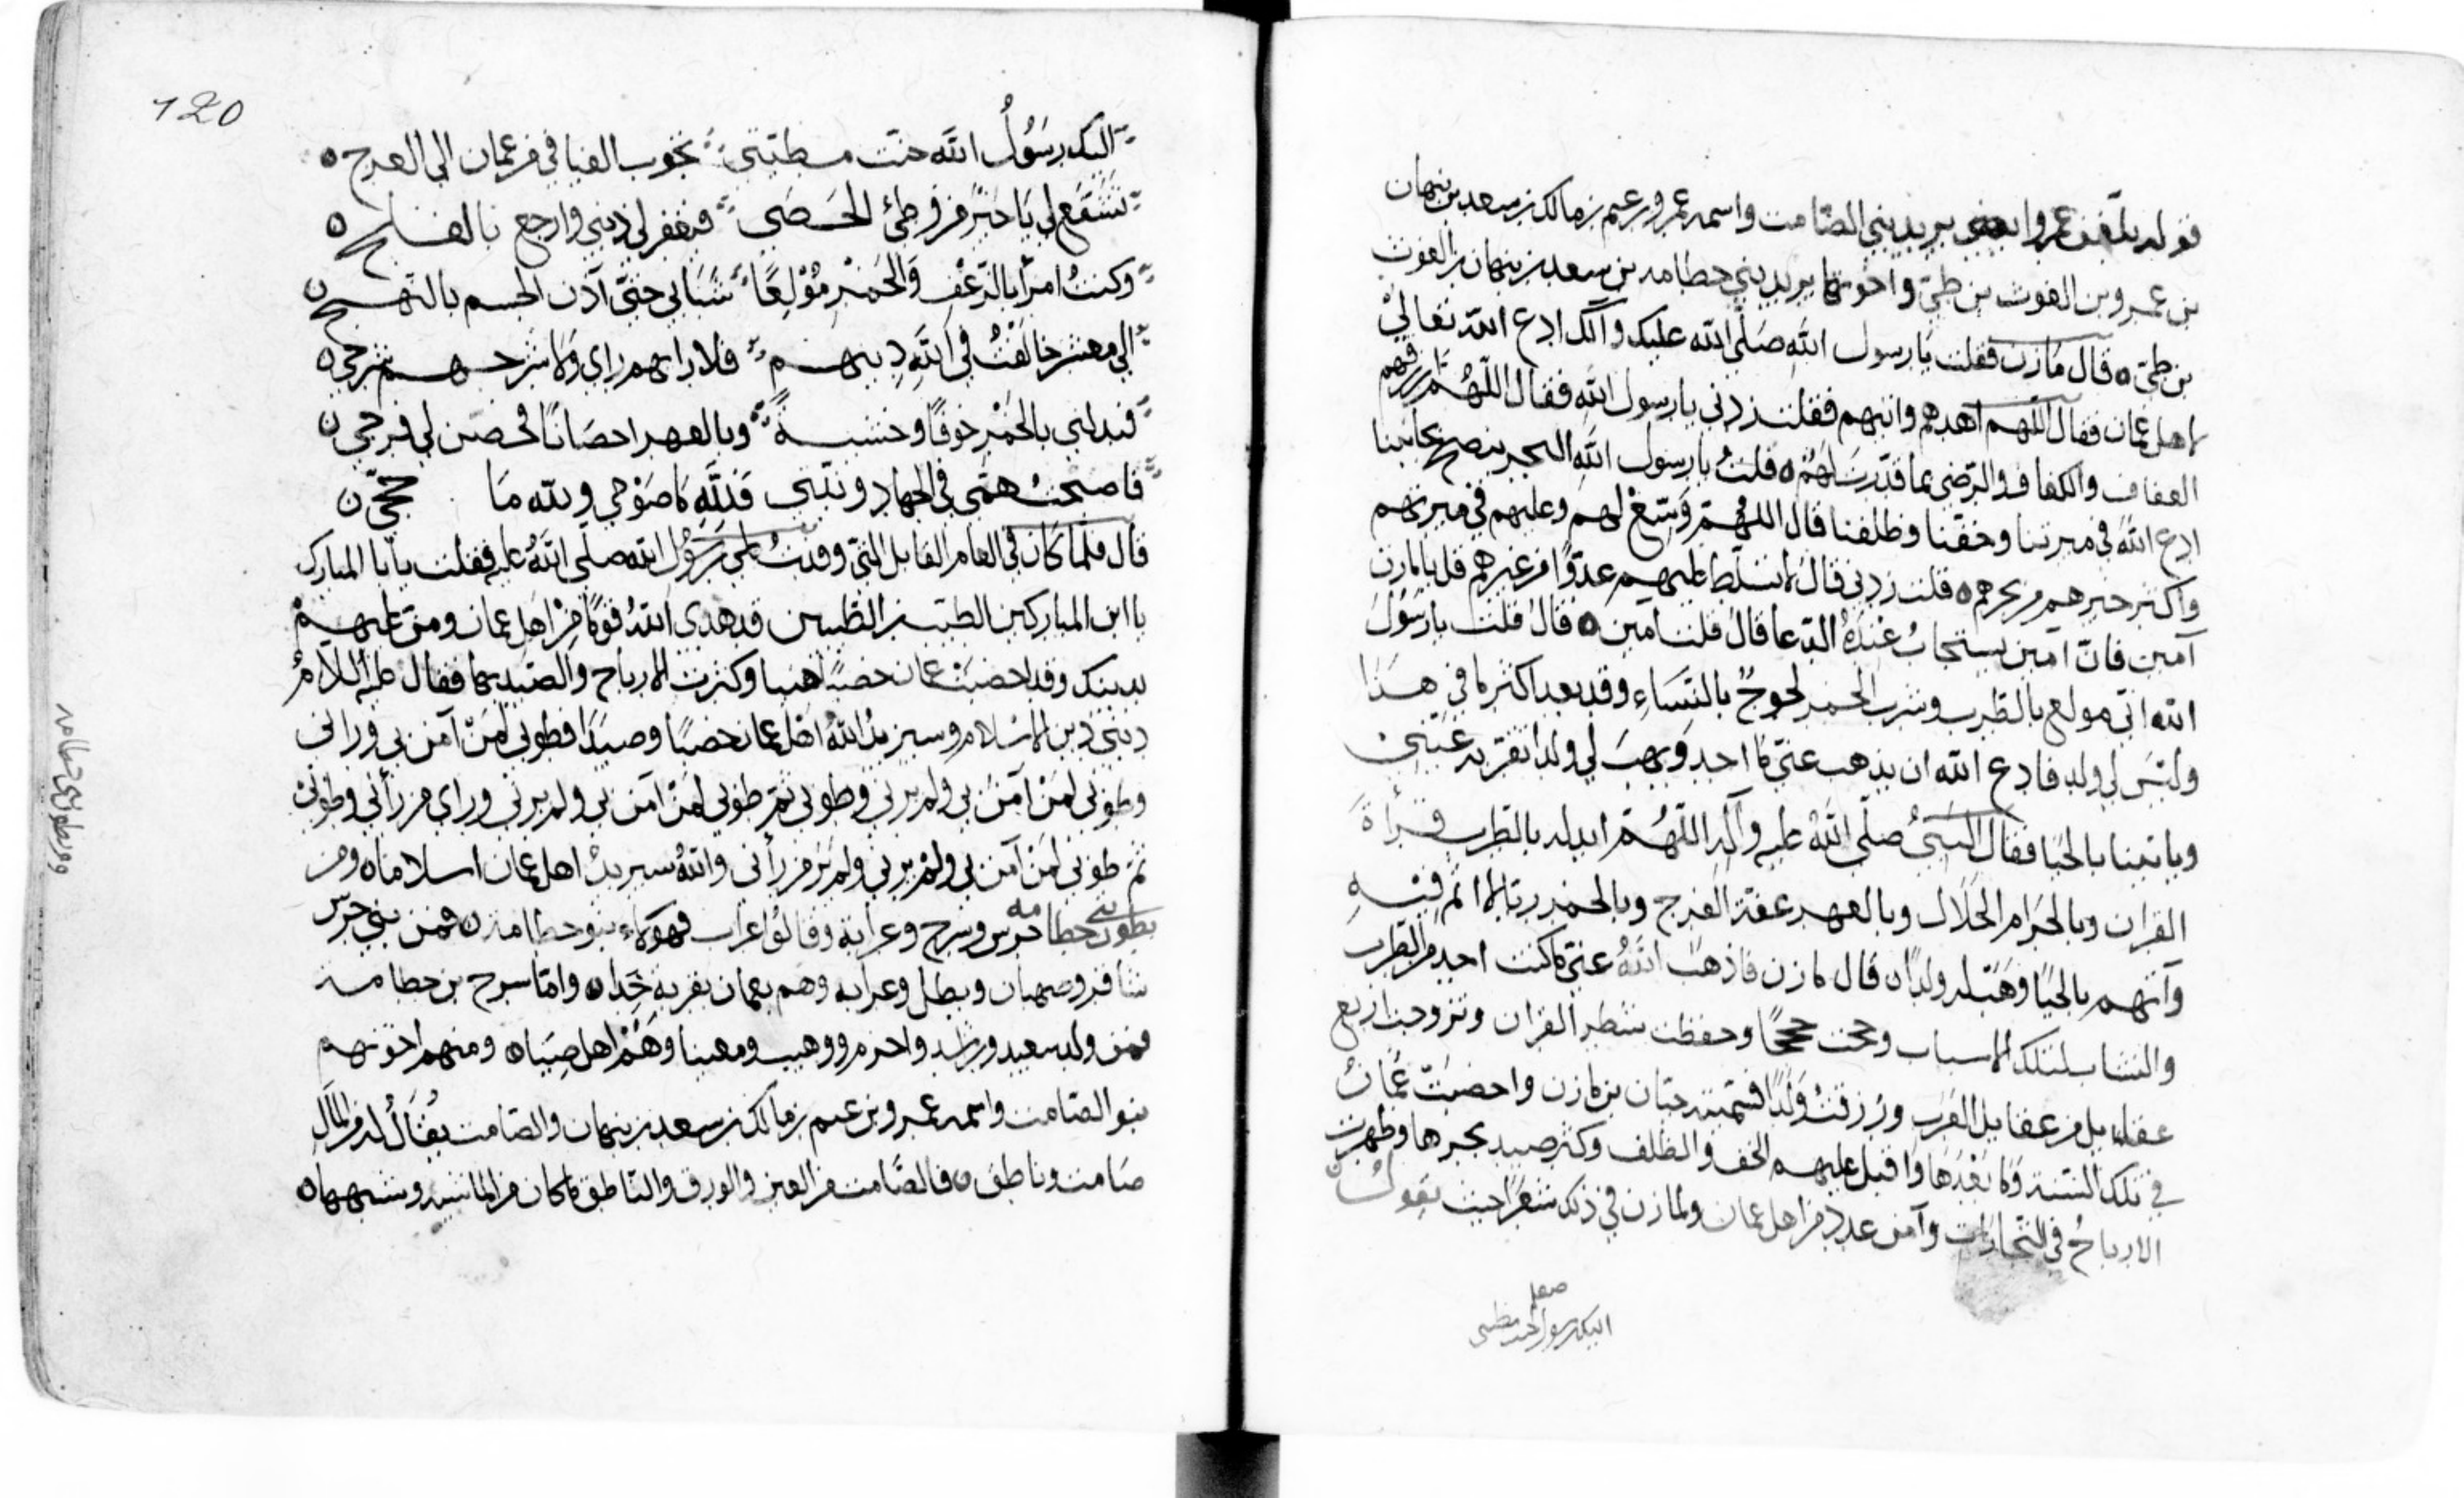 قوله بلّغن عمروا يريد بني الصّامت واسمه عمرو بن عيم بن مالك بن سعد بن نبهان
بن عمرو بن الغوث بن طيّ واخوتها يريد بني حطامه بن سعد بن نبهان بن الغوث
بن طيّ ه قال مازن فقلت يا رسول الله صلّى الله عليك وآلك ادع الله تعالى
لاهل عمان فقال اللهم اهدهم واثبهم فقلت زدني يا رسول الله فقال اللّهُمّ ارزقهم
العفاف والكفاف والرّضى بما قدّرت لهم ه قلتُ يا رسول الله البحر ينضح بجانبنا
ادع الله في ميرتنا وخفّنا وظلفنا قال اللهمّ وَسّع لهم وعليهم في ميرتهم
واكثر خيرهم من بحرهم ه قلت زدني قال لا تسلّط عليهم عدوًّا من غيرهم قل يا مازن
آمين فانّ آمين يستجابُ عندهُ الدّعا قال قلت آمين ه قال قلت يا رسُول
الله انّي مولع بالطّرب وشرب الخمر لجوجٌ بالنّساء وقد بعد اكثر ما في هذا
وليْسَ لي ولد فادع الله ان يذهب عنّي ما اجد وَيهبَ لي ولدًا تقرّ به عَيْني
وياتينا بالحيا فقال النبيُّ صلّى اللهُ عليه وآله اللّهُمّ ابدله بالطّرب قراءة
القران وبالحَرام الحَلال وبالعهر عفّة الفرج وبالخمر ريّا لا اثم فِيْهِ
وآتهم بالحيَا وَهَبْ له ولدًا ه قال مازن فاذهبَ اللهُ عنّي ما كنت اجد من الطّرب
والنّشا بتلك الاسباب وحججت حججًا وحفظت شطر القران وتزوجت اربع
عقايل من عقايل العَرَب ورُزقتُ وَلَدًا فسمّيته حيّان بن مازن واخصَبَتْ عُمَانُ
في تلك السّنة وَما بَعْدَهَا وَاقبل عليهم الخف والظلف وكثر صيد بحرها وظهرت
الارباحُ في التّجارات وآمن عدد من اهل عمان ولمازن في ذلك شعرًا حيث يقولُ
اليك رسول الله مطيتي
120
اليك رسُولَ الله خبّت مطيّتي تجوب الفيافي من عمان الى العرج ه
تشَفّع لي يَا خيْرَ من وطئ الحَصَى فيغفر لي ذنبي وارجع بالفلج ه
وكنتُ امرًا بالزعْفِ وَالخَمْرِ مُوْلعًا شبَابي حتّى آذن الجسم بالنهج ن
الى معشر خالَفْتُ في الله دينهم فلا رايهم رايي وَلا شرجهم شرجي ه
فبدلني بالخَمْر خوفًا وخشيةً وبالعهر احصَانًا فحصّن لي فرجي ن
فاصبحتُ همّي في الجهاد ونيّتي فللّه ما صَوْمي ولله مَا حجّي ن
قال فلمّا كان في العام القابل الّتي وفدتُ على رسُول الله صلّى اللهُ عليه فقلت يا با المبارك
يا ابن المباركين الطيّب بن الطيّبين قد هدى اللهُ قومًا مِنْ اهل عمان ومنّ عليهمْ
بدينك وقد اخصبَتْ عمان خصبًا هنيا وكثرت الارباح والصّيد بها فقال عليه السّلامُ
ديني دين الاسلام وسيزيدُ اللهُ اهْل عمان خصبًا وصيدًا فطوبى لمَنْ آمن بي وراني
وطوبى لمَنْ آمن بي ولم يرني وطوبى ثمّ طوبى لمَنْ آمن بي ولم يرني وراى من رآني وطوبى
ثمّ طوبى لمَنْ آمن بي ولمْ يرني ولم يَرَ من رآني واللهُ سيزيدُ اهل عمان اسلاما ه ومن
بطون بني حطامه جرس وسرح وعرابة وقالوا عراب فهولاء بنو حطامة ن فمن بني جرس
شاقر وصهبان وبطل وعرابه وهم بعمان بقرية خَدا ه وامّا سرح بن حطامة
فمن ولده سعيد وراشد واحزم ووهيب ومعينا وَهُمْ اهل صِيَا ه ومنهم اخوتهم
بنو الصّامت واسمه عمرو بن عيم بن مالك بن سعد بن نبهان والصّامت يُقالُ له من المالِ
صَامت وناطق ه فالصّامت من العين والورق والنّاطق ما كان من الماشية وشبهها ه